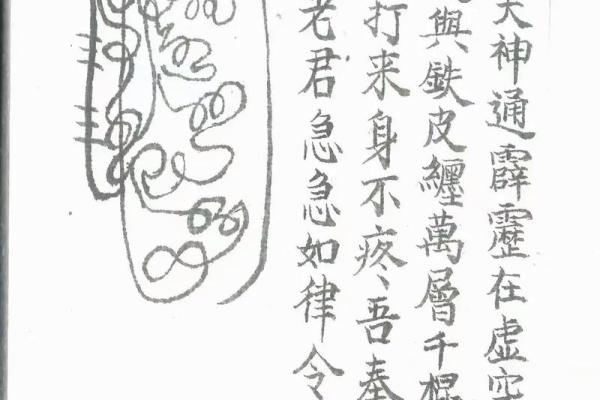 天神通霹靂在虚空
與鉄皮纏萬層千棍
打来身不疼吾奉
老君急急如律令